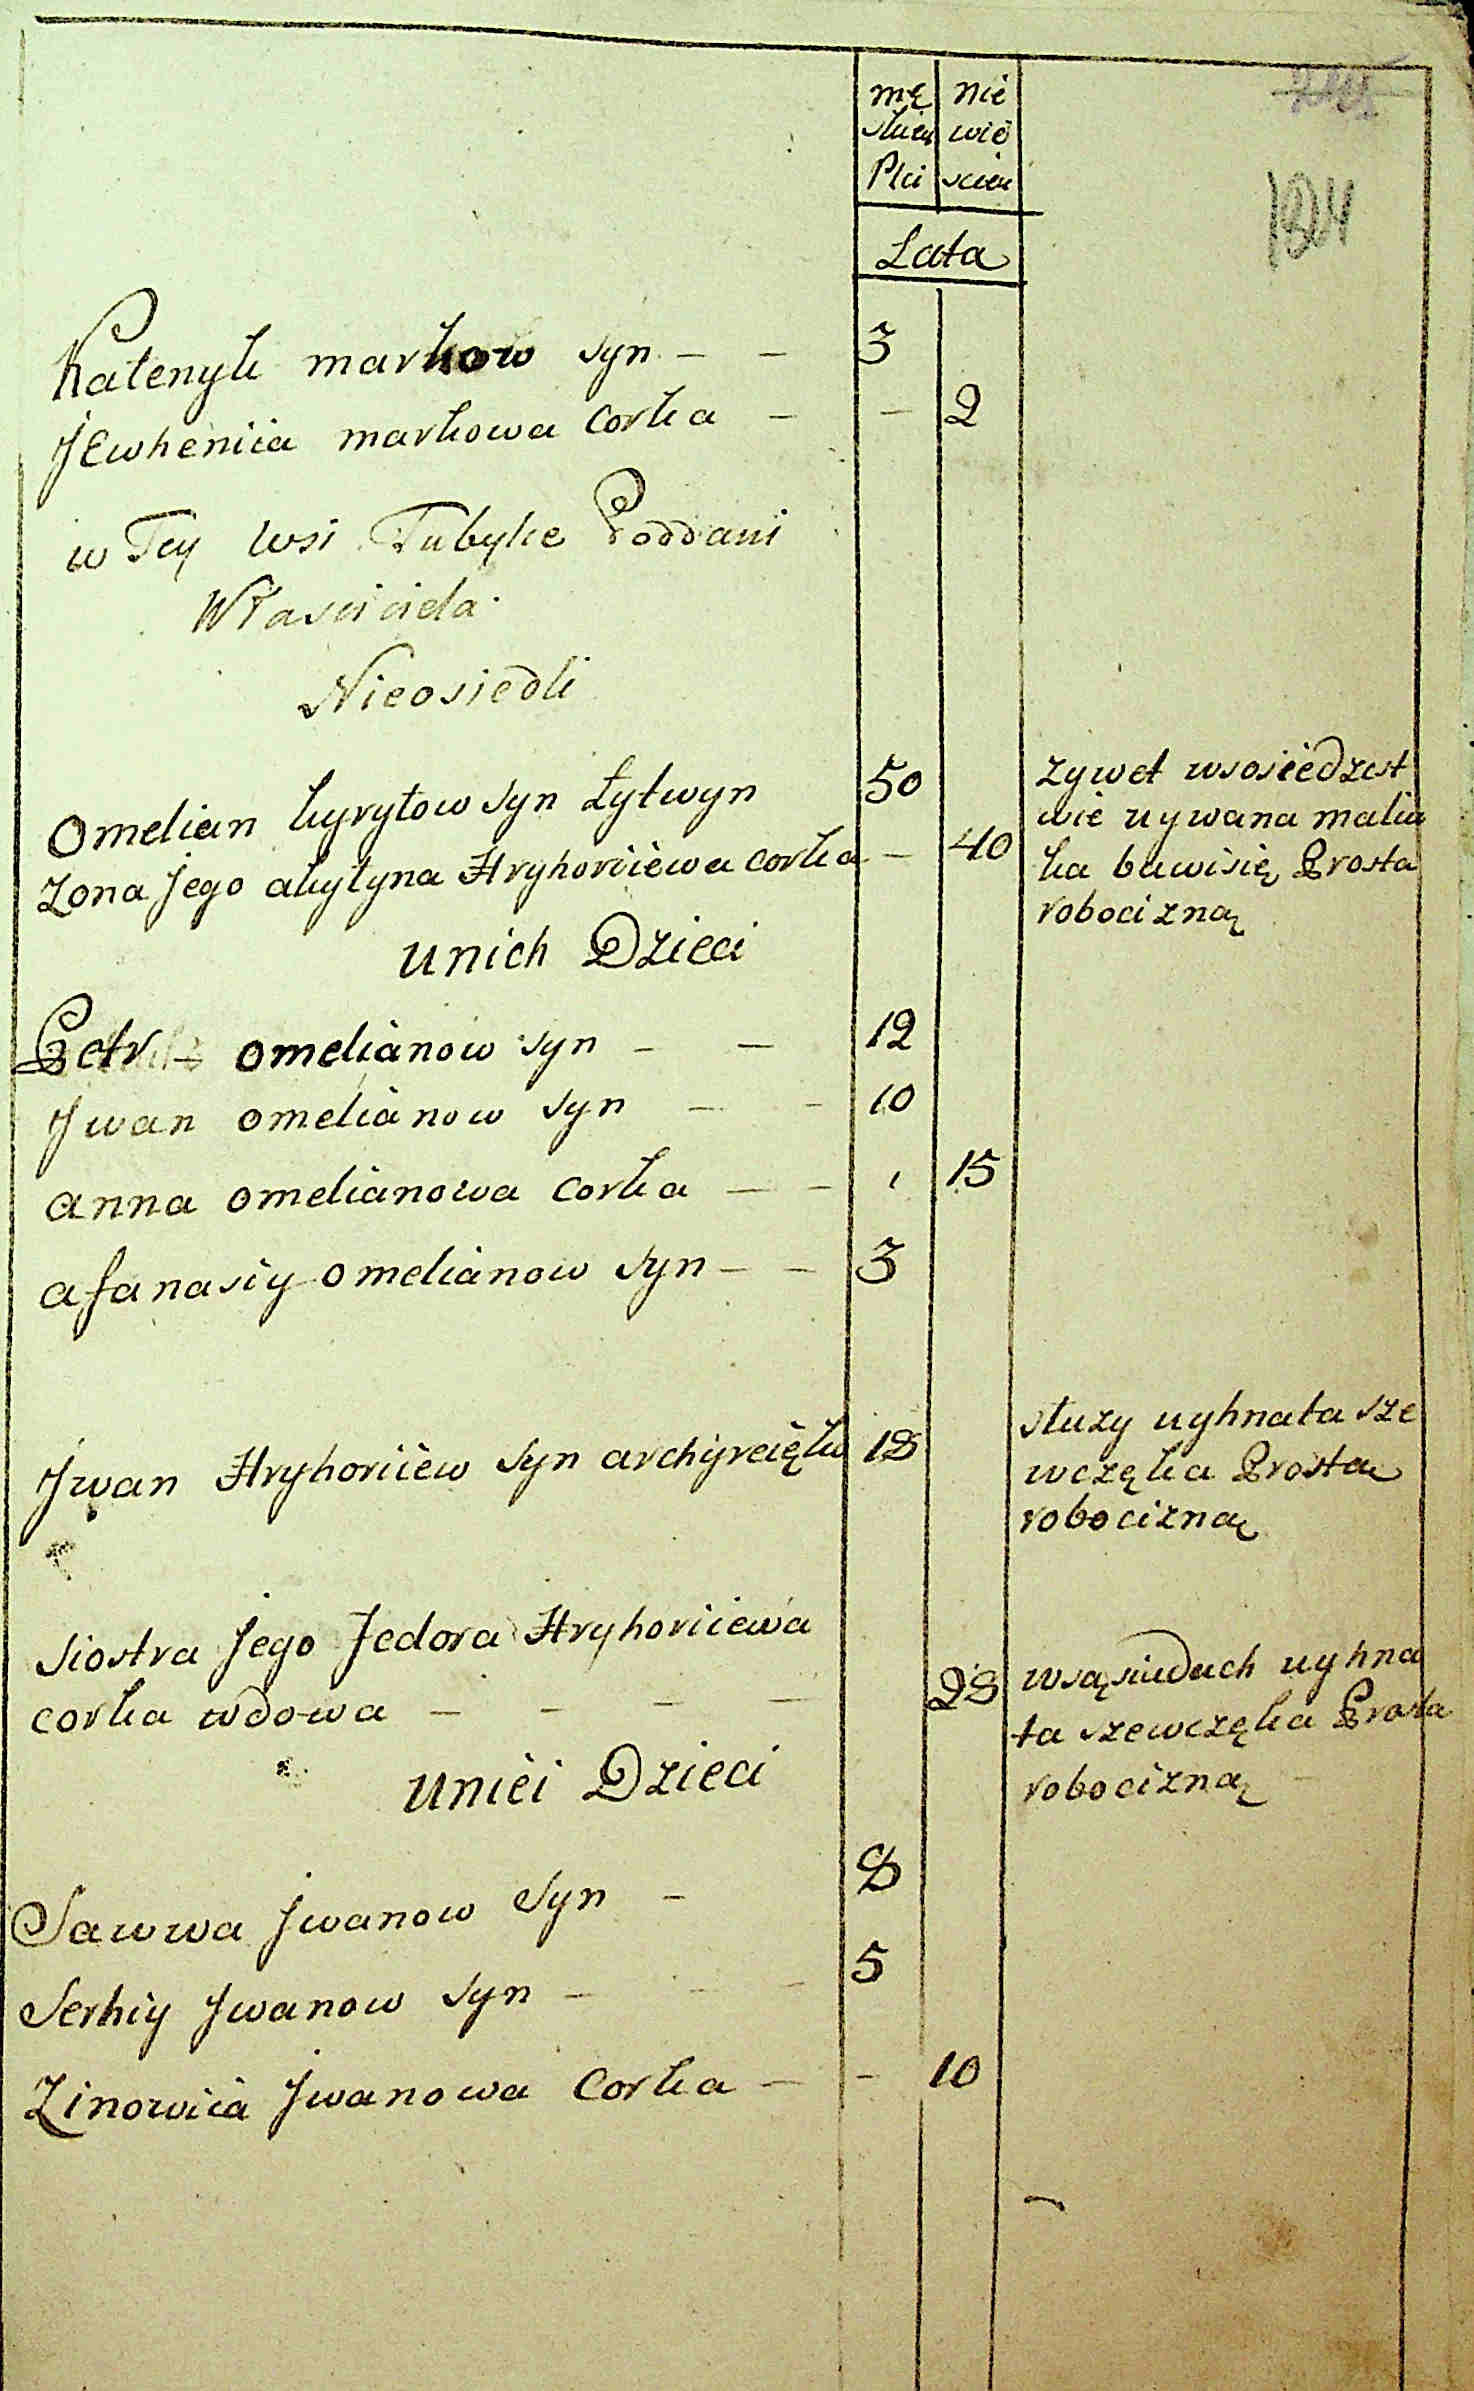 mę nie
skieÿ wie
Płci scieÿ
184
Lata
Kałenyk markow syn - - 3
Jewheniia markowa corka - - 2
w Tey wsi Tubyke Poddani
Własciciela
Nieosiedli
omelian kyryłow syn Łytwyn 50
zona Jego akylyna Hryhoriiewa corka - 40
zywet wsosiedzest
wie u ywana malu
ka bawi się Prosta
robocizną
unich Dzieci
Petr omelianow syn - - 12
Jwan omelianow syn - - 10
anna omelianowa corka - - 15
afanasiy omelianow syn - - 3
Jwan Hryhoriiew syn archyreięk 18
słuzy uyhnata sze
wczęka Prosta
robocizną
siostra Jego Fedora Hryhoriiewa
corka wdowa - - - - 28
wsąsiadach uyhna
ta szewczęka Prosta
robocizną
uniei Dzieci
Sawwa Jwanow syn - 8
Serhiy Jwanow syn - - - 5
Zinowiia Jwanowa Corka - - 10